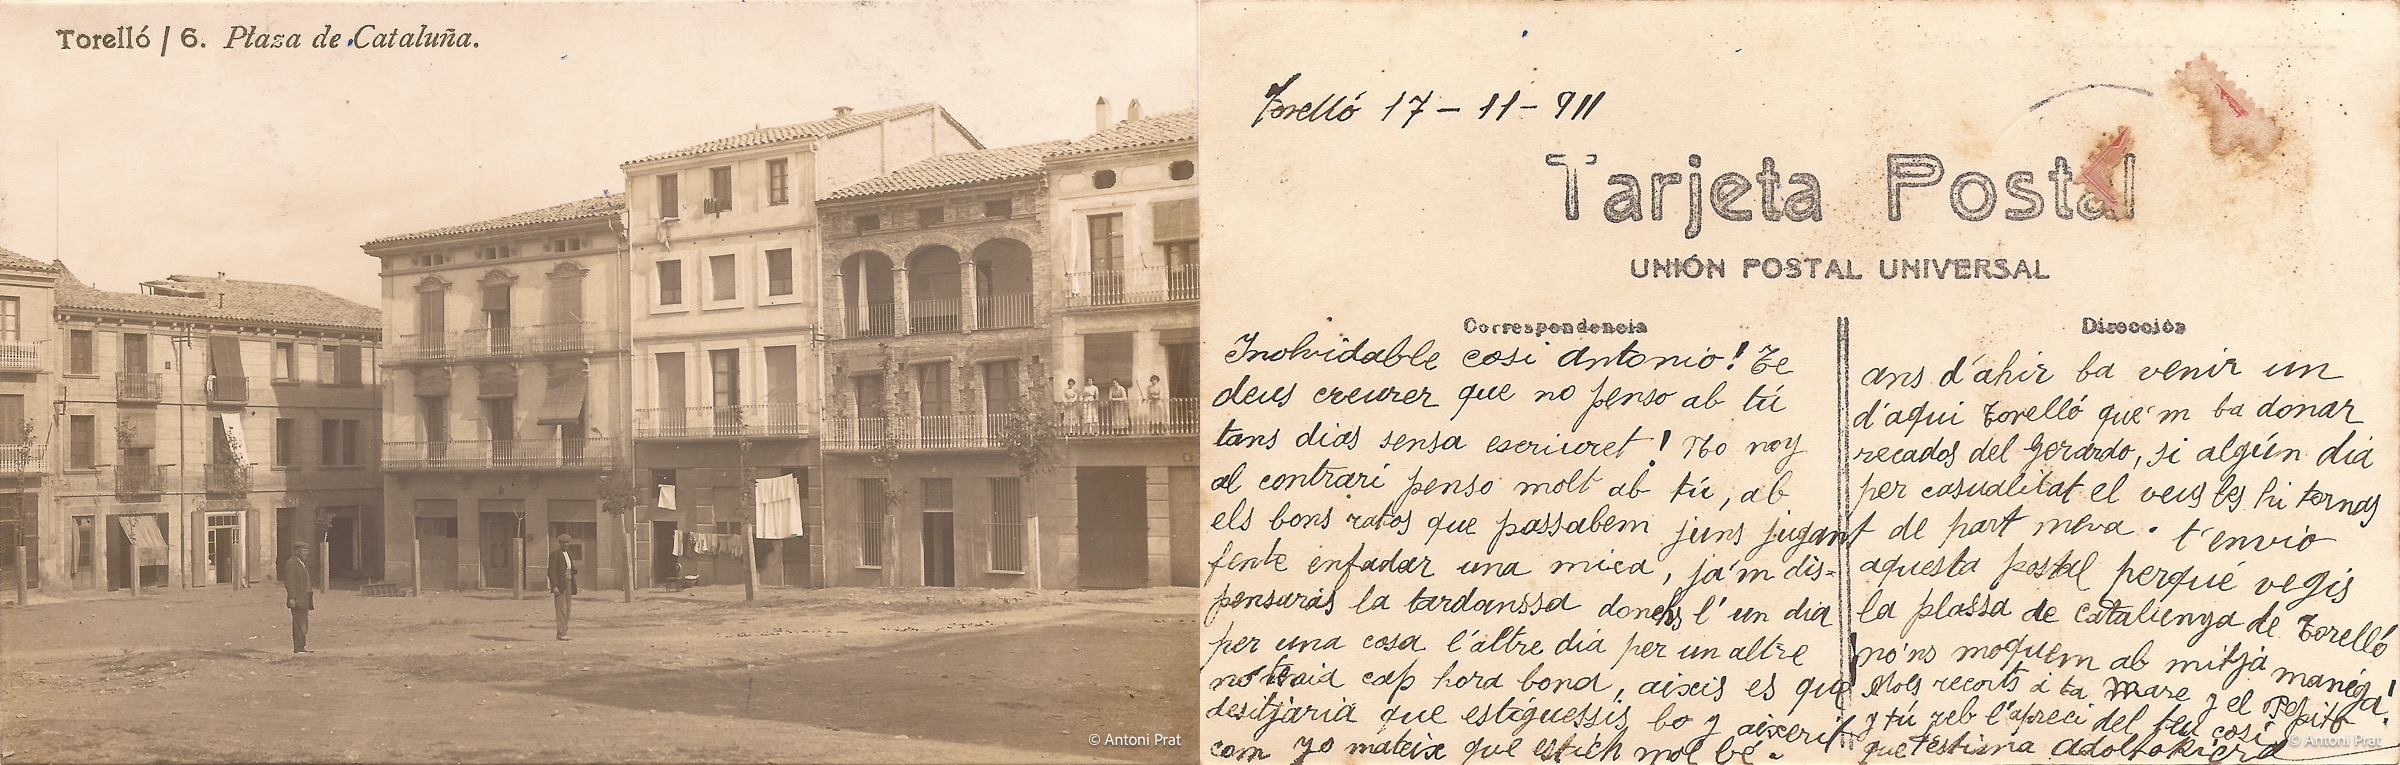 Torelló / 6. Plaza de Cataluña.
© Antoni Prat
Torelló 17-11-911
Tarjeta Postal
UNIÓN POSTAL UNIVERSAL
Correspondencia
Inolvidable cosi Antonio! Te
deus creurer que no penso ab tú
tans dias sensa escriuret! No noy
al contrari penso molt ab tú, ab
els bons ratos que passabem juns jugant
fente enfadar una mica, já'm dis-
pensarás la tardanssa donchs l'un dia
per una cosa l'altre dia per un altre
no traia cap hora bona, aixis es que
desitjaria que estiguessis bo y aixerit
com yo mateix que estich mol bé.
Dirección
ans d'ahir ba venir un
d'aqui Torelló que'm ba donar
recados del Gerardo, si algún dia
per casualitat el veus les hi tornas
de part meva. t'envio
aquesta postal perqué vegis
la plassa de Catalunya de Torelló
no'ns moquem ab mitja maniga!
Mols recorts á ta Mare y el Pepito
y tú reb l'apreci del teu cosi
que t'estima Adolfo Riera
© Antoni Prat